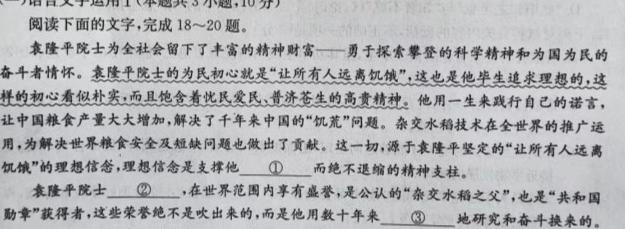 (一)语言文字运用Ⅰ(本题共3小题,10分)
阅读下面的文字,完成18～20题。
袁隆平院士为全社会留下了丰富的精神财富——勇于探索攀登的科学精神和为国为民的
奋斗者情怀。袁隆平院士的为民初心就是“让所有人远离饥饿”,这也是他毕生追求理想的,这
样的初心看似朴实,而且饱含着忧民爱民、普济苍生的高贵精神。他用一生来践行自己的诺言,
让中国粮食产量大大增加,解决了千年来中国的“饥荒”问题。杂交水稻技术在全世界的推广运
用,为解决世界粮食安全及短缺问题也做出了贡献。这一切,源于袁隆平坚定的“让所有人远离
饥饿”的理想信念,理想信念是支撑他 ① 而绝不退缩的精神支柱。
袁隆平院士 ② ,在世界范围内享有盛誉,是公认的“杂交水稻之父”,也是“共和国
勋章”获得者,这些荣誉绝不是吹出来的,而是他用数十年来 ③ 地研究和奋斗换来的。